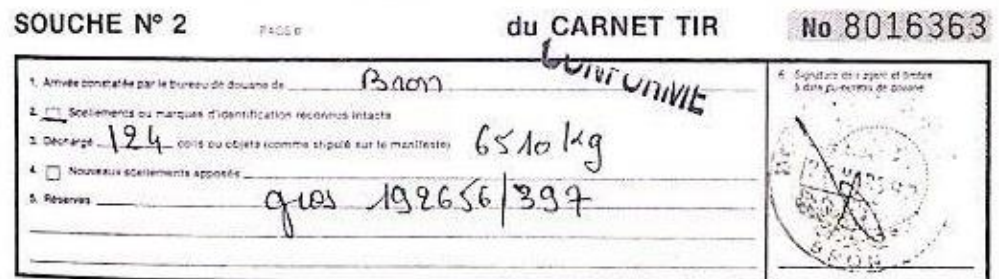 SOUCHE Nº 2 PAGE 6 du CARNET TIR No 8016363
CONFORME
1. Arrivée constatée par le bureau de douane de Bron
2. Scellements ou marques d'identification reconnus intacts
3. Déchargé 124 colis ou objets (comme stipulé sur le manifeste) 6510 kg
4. Nouveaux scellements apposés
5. Réserves 192656/397
6. Signature de l'agent et timbre
à date du bureau de douane
BRON